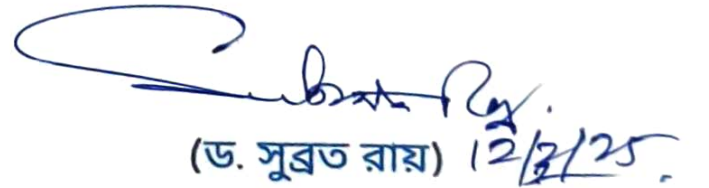 Subrata Roy.
(ড. সুব্রত রায়) 12/2/25.